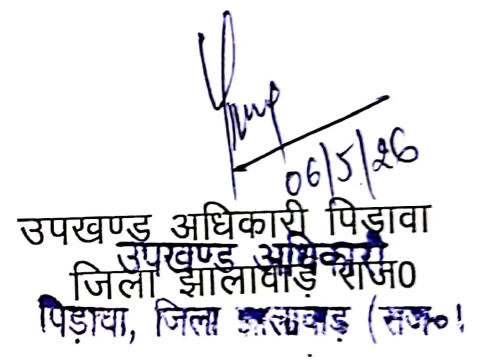 06/5/26
उपखण्ड अधिकारी पिड़ावा
उपखण्ड अधिकारी
जिला झालावाड़ राज0
पिड़ावा, जिला झालावाड़ (राज०)